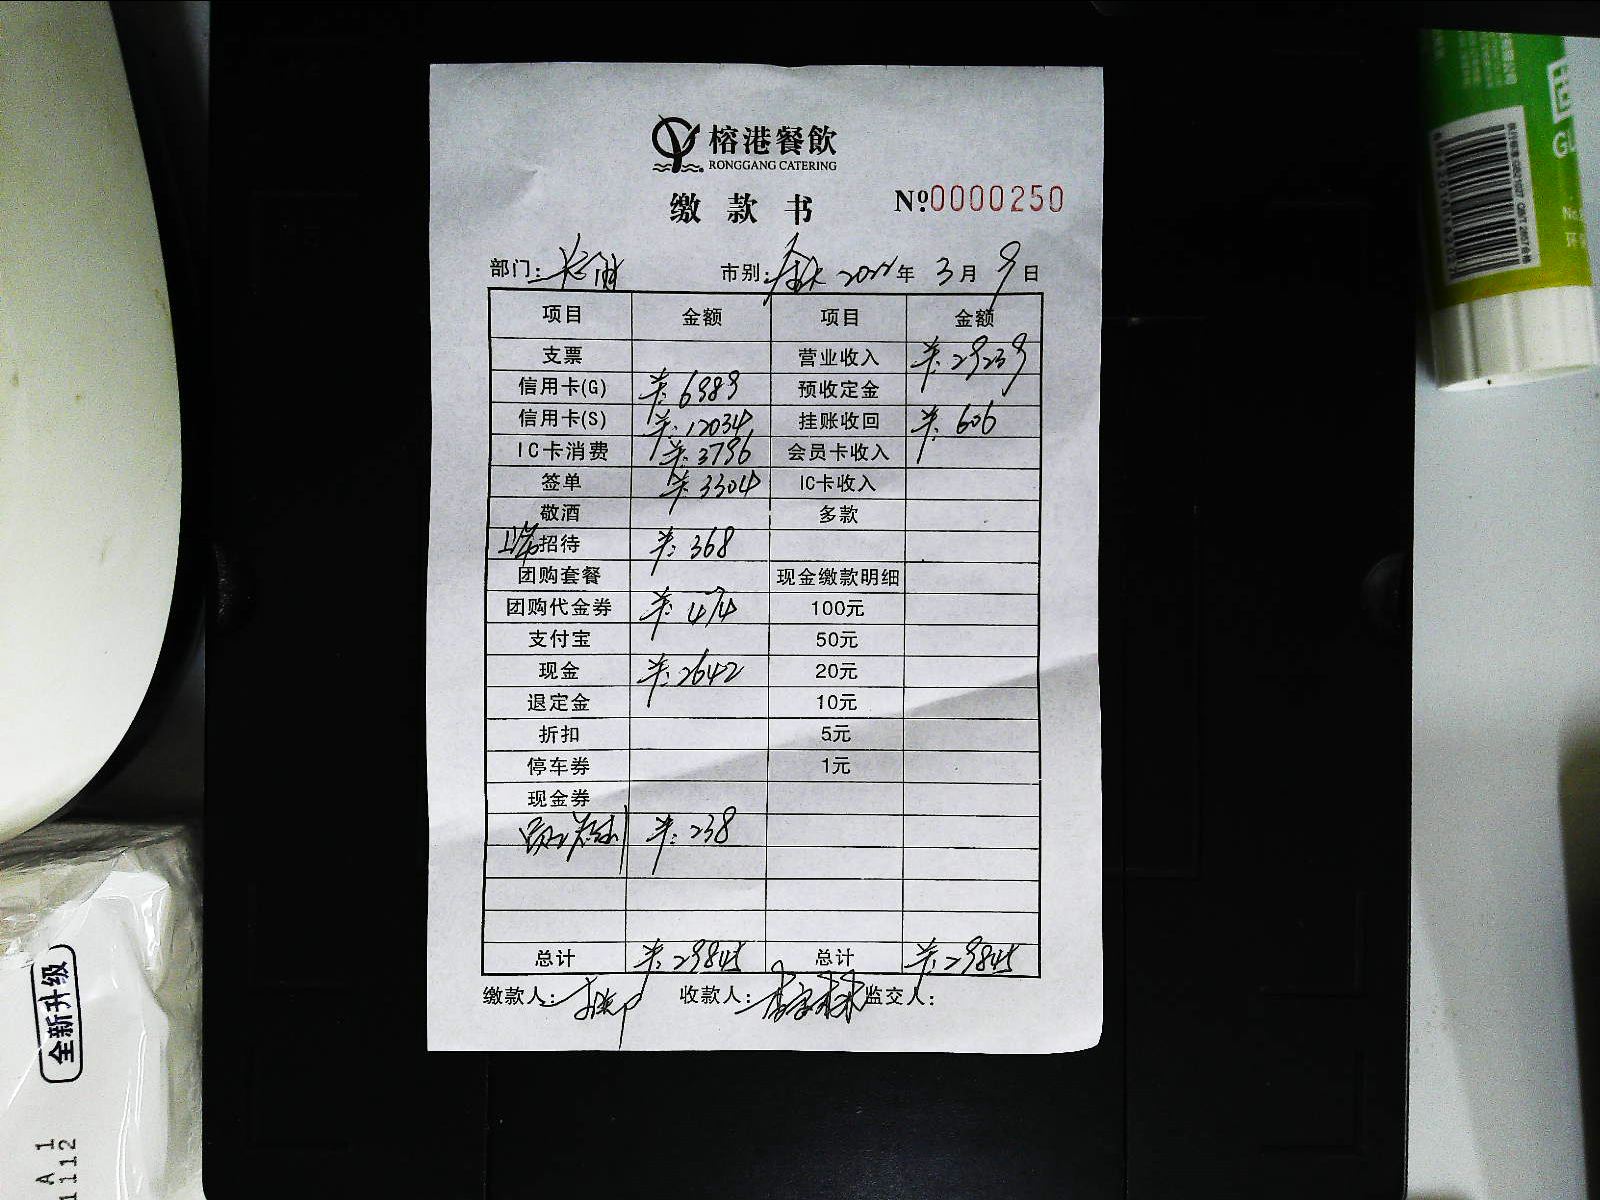 榕港餐飲
RONGGANG CATERING
缴款书 Nº 0000250
部门: 市别: 年 3月 9日
项目 金额 项目 金额
支票 营业收入 ¥:29239
信用卡(G) ¥:6989 预收定金
信用卡(S) ¥:12034 挂账收回 ¥:606
IC卡消费 ¥:3796 会员卡收入
签单 ¥:3304 IC卡收入
敬酒 多款
招待 ¥:368
团购套餐 现金缴款明细
团购代金券 ¥:474 100元
支付宝 50元
现金 ¥:2642 20元
退定金 10元
折扣 5元
停车券 1元
现金券
¥:238
总计 ¥:29845 总计 ¥:29845
缴款人: 收款人: 监交人:
全新升级
A 1
1112